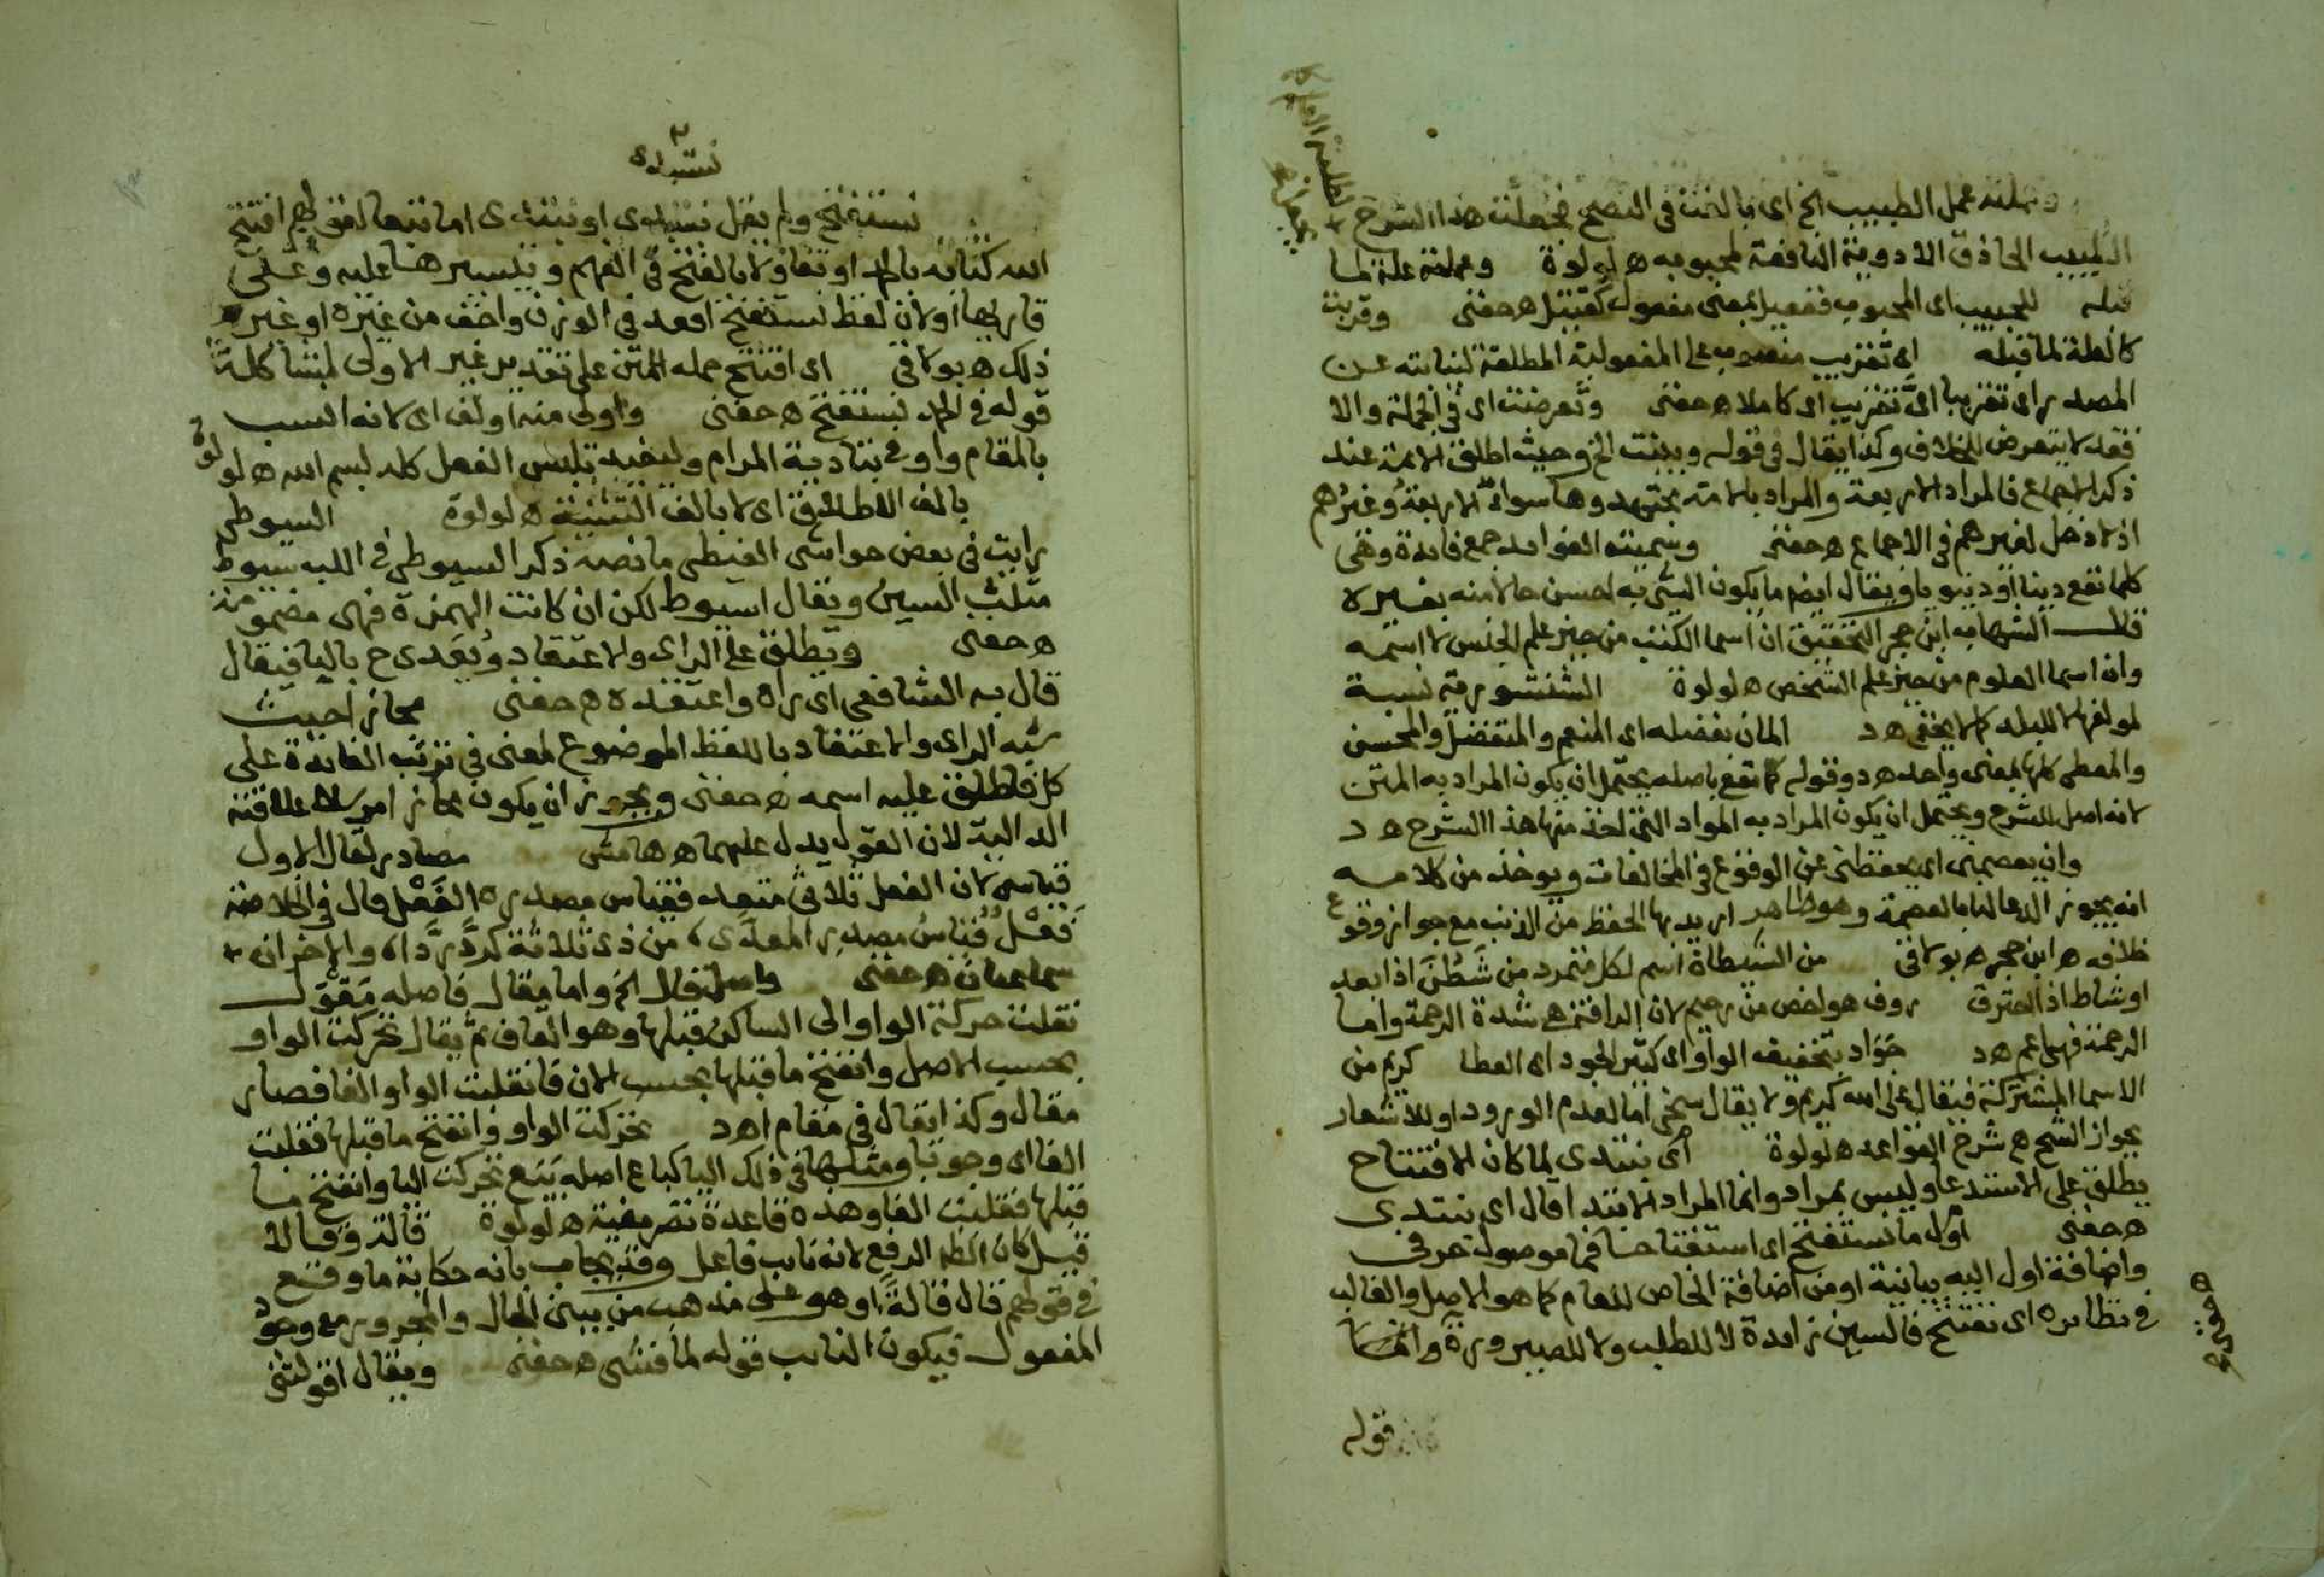 وعملته عمل الطبيب الخ اى بالغت فى النصح فجعلت هذا الشرح
الطبيب الحاذق الادوية النافعة لمحبوبه ه لولوة وعملته علة لما
قبله للحبيب اى المحبوب ففعيل بمعنى مفعول كقتيل ه حفنى وقربت
كالعلة لما قبله اى تقريب منصوب على المفعولية المطلقة لنيابته عن
المصدر اى تقريبا اى تقريب اى كاملا ه حفنى وتعرضت اى فى الجملة والا
فقد لا يتعرض للخلاف وكذا يقال فى قوله وبينت الخ وحيث اطلق الايمة عند
ذكر الاجماع فالمراد الاربعة والمراد بالامة مجتهدوها سواء الاربعة وغيرهم
اذ لا دخل لغيرهم فى الاجماع ه حفنى وسميته الفوايد جمع فايدة وهى
كلما نفع دينا او دنيويا ويقال ايضا ما يكون الشى به احسن حالا منه بغيره لا
قال الشهاب ابن حجر التحقيق ان اسما الكتب من حيز علم الجنس لا اسمه
وان اسما العلوم من حيز علم الشخص ه لولوة الشنشورية نسبة
لمولفها لا للبلد كما لا يخفى ه د المان بفضله اى المنعم والمتفضل والمحسن
والمعطى كلها بمعنى واحد ه د وقوله كما نفع باصله يحتمل ان يكون المراد به المتن
لانه اصل للشرح ويحتمل ان يكون المراد به المواد التى اخذ منها هذا الشرح ه د
وان يعصمنى اى يحفظنى عن الوقوع فى المخالفات ويوخذ من كلامه
انه يجوز الدعا لنا بالعصمة وهو ظاهر ان اريد بها الحفظ من الذنب مع جواز وقوع
خلافه ه ابن حجر ه بولاقى من الشيطان اسم لكل متمرد من شَطَنَ اذا بعد
او شاط اذا احترق روف هو اخص من رحيم لان الرافة هى شدة الرحمة واما
الرحمة فهى اعم ه د جَوَاد بتخفيف الواو اى كثير الجود اى العطا كريم من
الاسما المشتركة فيقال على الله كريم ولا يقال سخى اما لعدم الورود او للاشعار
بجواز الشح ه شرح القواعد ه لولوة اى نبتدى لما كان الافتتاح
يطلق على الاستدعا وليس بمراد وانما المراد الابتدا قال اى نبتدى
ه حفنى اول ما نستفتح اى استفتاحنا فما موصول حرفى
واضافة اول اليه بيانية او من اضافة الخاص للعام كما هو الاصل والغالب
فى نظايره اى نفتتح فالسين زايدة لا للطلب ولا للصيرورة وانما
قوله
نبتدى
نستفتح ولم يقل نبتدى او نبتدى اما تبعا لقولهم افتتح
الله كتابه بالحمد او تفاؤلا بالفتح فى الفهم وتيسيرها عليه وعلى
قاريها او لان لفظ نستفتح اقعد فى الوزن واخف من غيره او غير
ذلك ه بولاقى اى افتتح حمله المتن على تقدير غير الاولى لمشاكلة
قوله فى الحمد نستفتح ه حفنى واولى منه اولف اى لانه انسب
بالمقام واوفى بتادية المرام وليفيد تلبس الفعل كله ببسم الله ه لولوة
بالف الاطلاق اى لا بالف التثنية ه لولوة السيوطى
رايت فى بعض حواشى الغيطى ما نصه ذكر السيوطى فى اللب سيوط
مثلث السين ويقال اسيوط لكن ان كانت الهمزة فهى مضمومة
ه حفنى ويطلق على الراى والاعتقاد ويُعَدى ح باليا فيقال
قال به الشافعى اى راه واعتقده ه حفنى مجازا حيث
شبه الراى والاعتقاد باللفظ الموضوع لمعنى فى ترتب الفايدة على
كل فاطلق عليه اسمه ه حفنى ويجوز ان يكون مجاز امرسلا علاقته
الدالية لان القول يدل عليهما ه هامش مصادر لقال الاول
قياسى لان الفعل ثلاثى متعد فقياس مصدره الفَعْل قال فى الخلاصة
فَعْلٌ قياسُ مصدرِ المعدّى، من ذى ثلاثة كردَّ رَدّا، والاخران
سماعيان ه حفنى واصل قال الخ واما مقال فاصله مَقْوَل
نقلت حركة الواو الى الساكن قبلها وهو القاف ثم يقال تحركت الواو
بحسب الاصل وانفتح ما قبلها بحسب الان فانقلبت الواو الفا فصار
مقال وكذا يقال فى مقام ا ه د تحركت الواو وانفتح ما قبلها فقلبت
الفا اى وجوبا ومثلها فى ذلك اليا كباع اصله بَيَع تحركت اليا وانفتح ما
قبلها فقلبت الفا وهذه قاعدة تصريفية ه لولوة قالة وقالا
قيل كان الظاهر الرفع لانه نايب فاعل وقد يجاب بانه حكاية ما وقع
فى قولهم قال قالةً او هو على مذهب من ينيب الحال والمجرور مع وجود
المفعول فيكون النايب قوله لما فشى ه حفنى ويقال اقولتنى